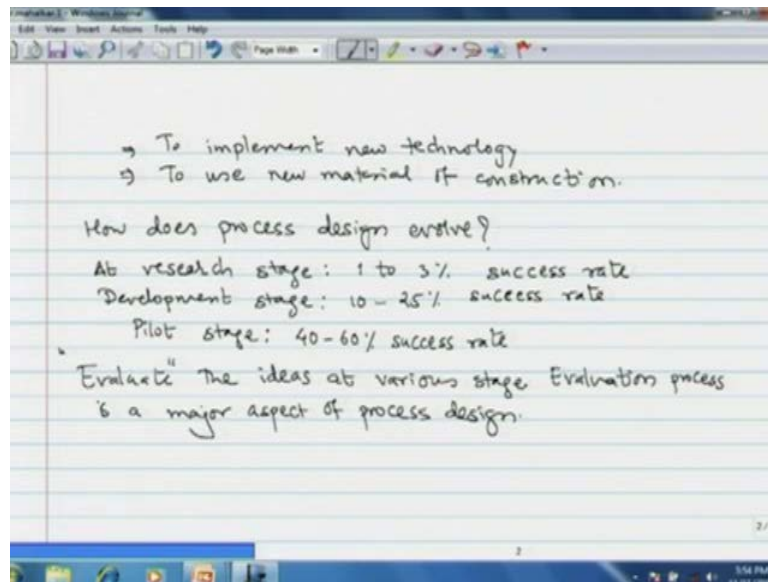 mahalkar 2 - Windows Journal
Edit View Insert Actions Tools Help
Page Width
→ To implement new technology
⇒ To use new material of construction.
How does process design evolve?
At research stage: 1 to 3% success rate
Development stage: 10-25% success rate
Pilot stage: 40-60% success rate
"Evaluate" The ideas at various stage Evaluation process
is a major aspect of process design.
2/
2
5:54 PM